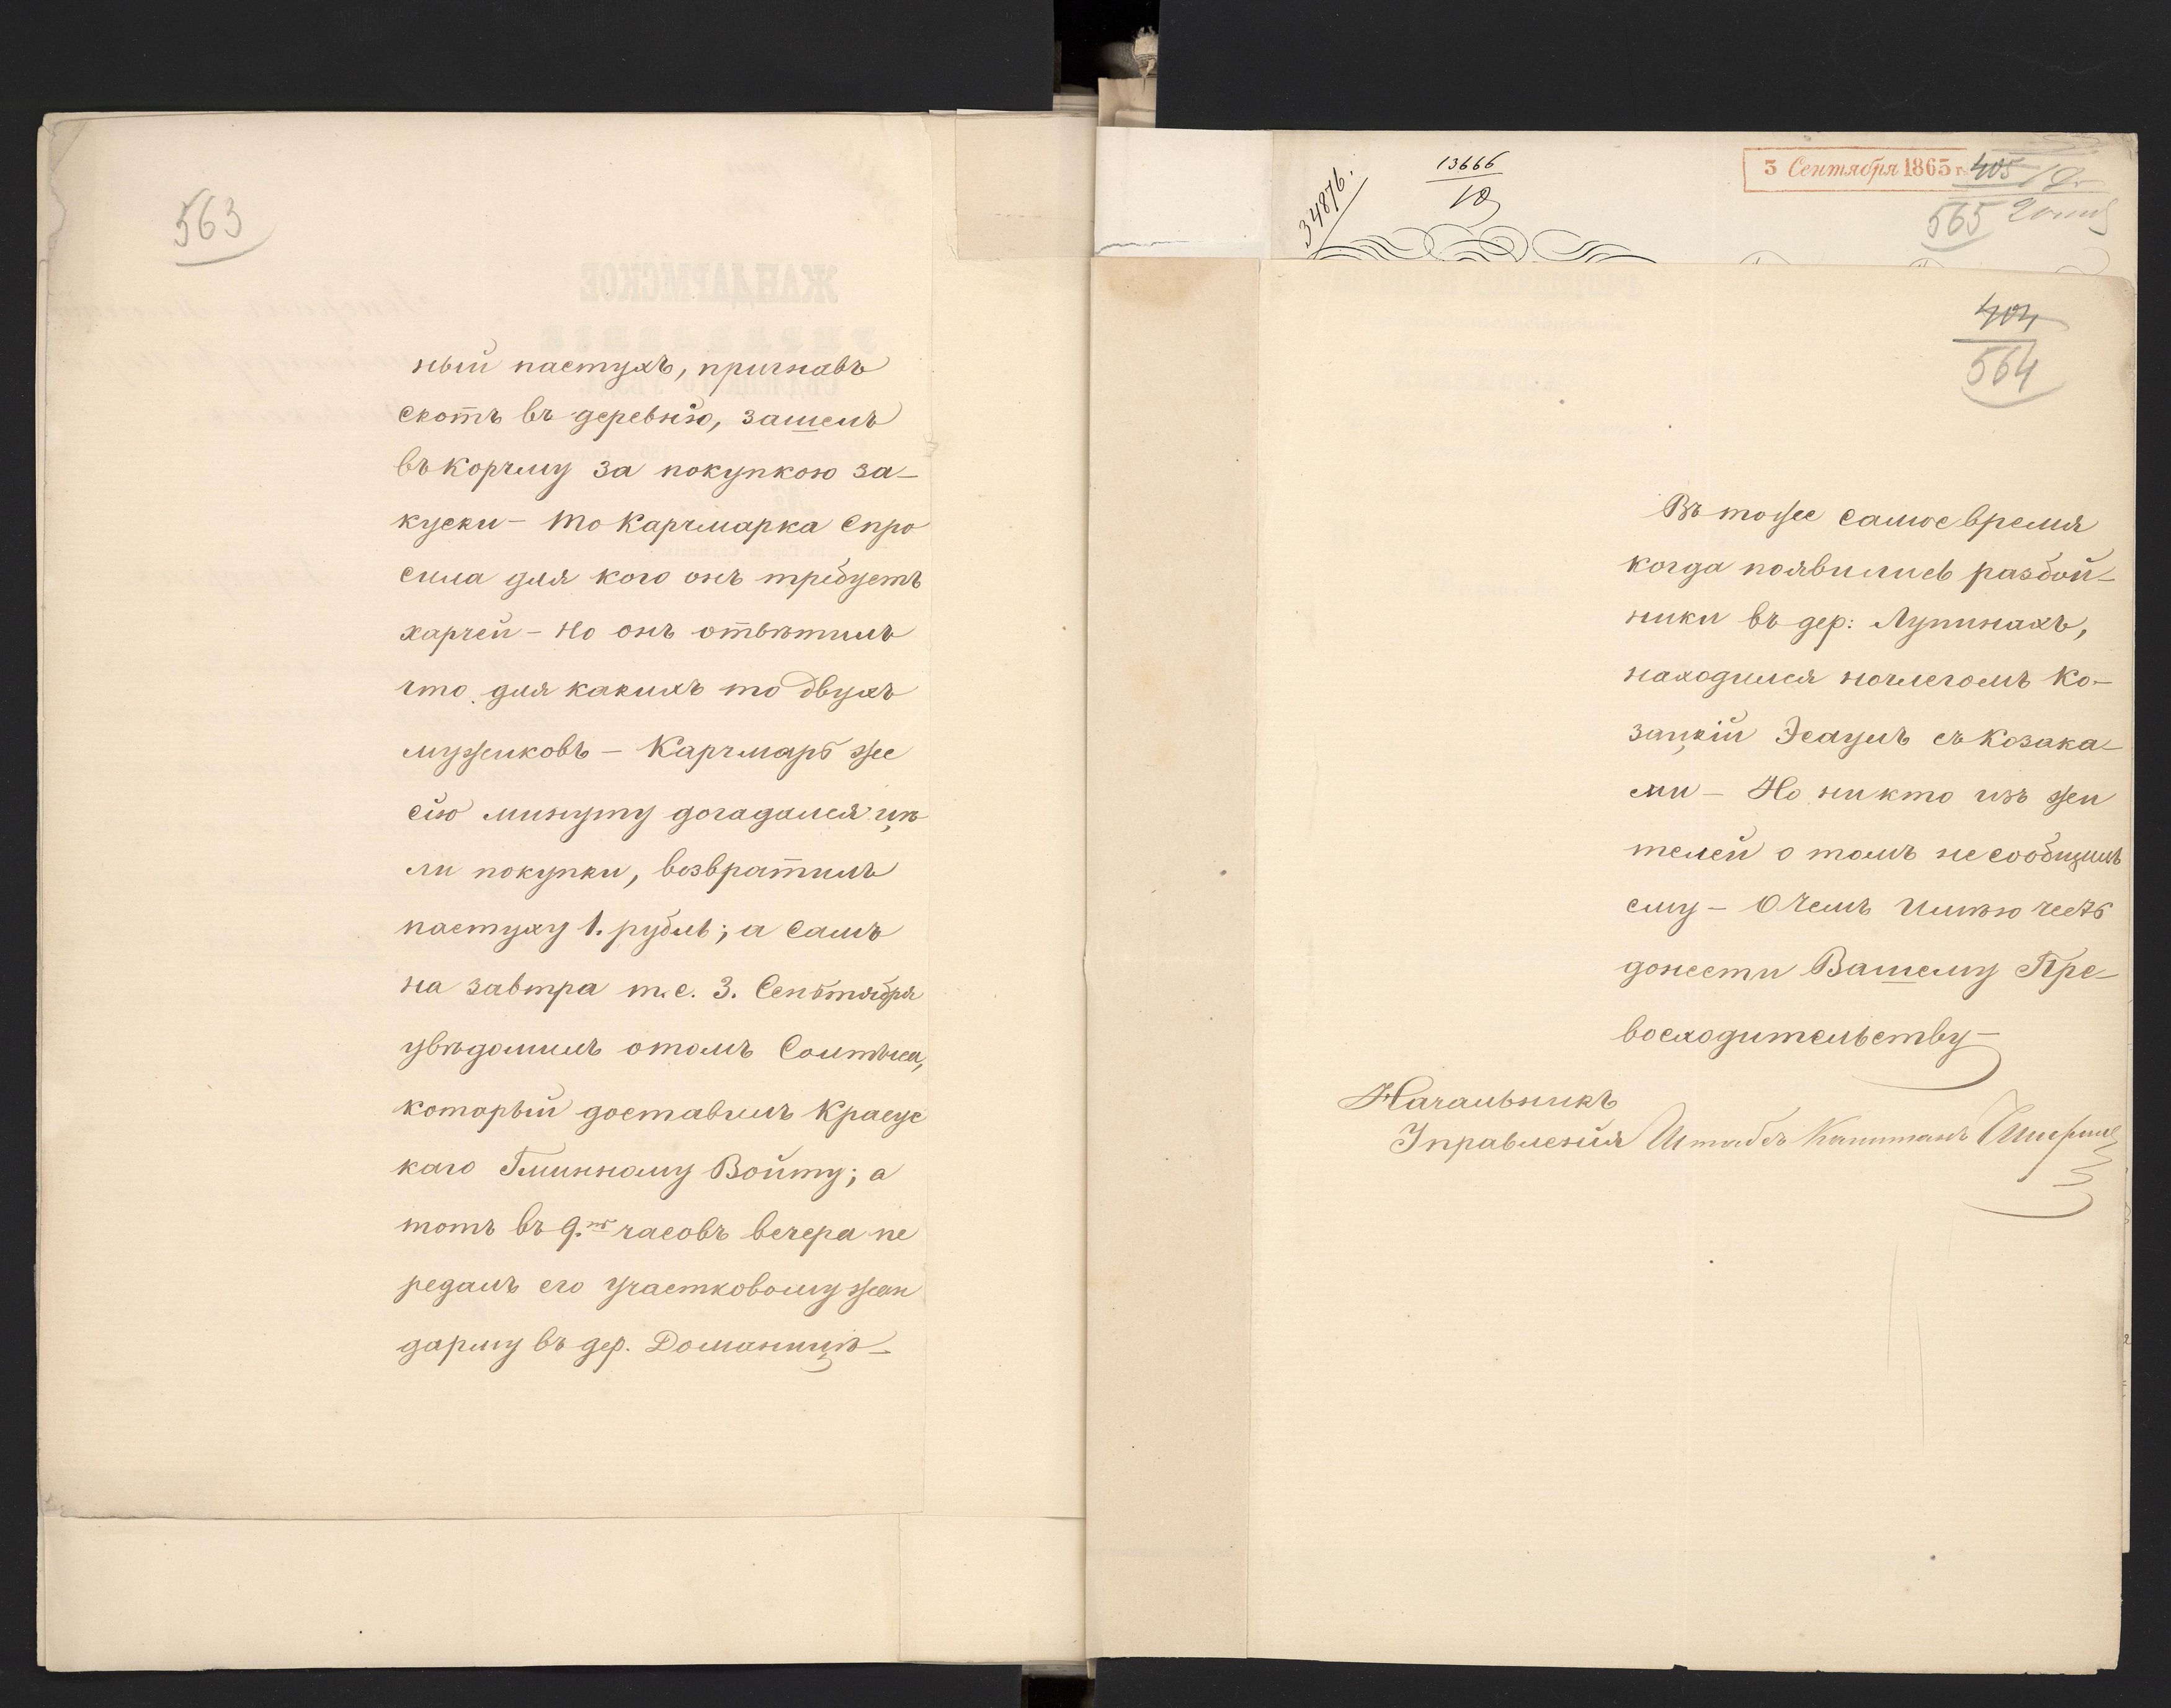 563
ный пастухъ, пригнавъ
скотъ въ деревню, зашелъ
въ корчму за покупкою за-
куски - то Карчмарка спро
сила для кого онъ требуетъ
харчей - но онъ отвѣтилъ
что для какихъ то двухъ
мужиковъ - Карчмарь же
сію минуту догадался цѣ
ли покупки, возвратилъ
пастуху 1. рубль; а самъ
на завтра т. е. 3. Сентября
увѣдомилъ о томъ Солтыса,
который доставилъ Краеус
каго Гминному Войту; а
тотъ въ 9.ть часовъ вечера пе
редалъ его участковому жан
дарму въ дер. Доманицѣ-
34876.
13666
18
3 Сентября 1865 г.
405
565
404
564
Въ тоже самое время
когда появились разбой-
ники въ дер: Лупинахъ,
находился ночлегомъ Ко-
зацкій Эсаулъ съ Козака-
ми - Но никто изъ жи
телей о томъ не сообщилъ
ему - О чемъ имѣю честь
донести Вашему Пре-
восходительству-
Начальникъ
Управленія Штабсъ Капитанъ